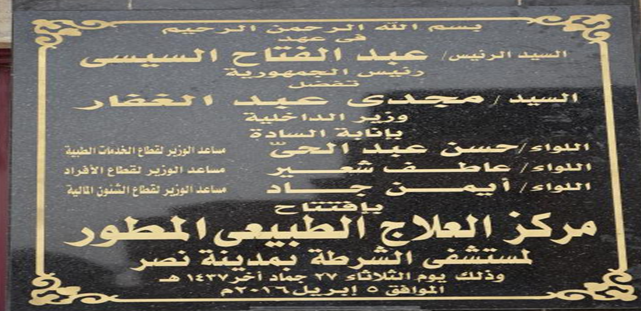 بسم الله الرحمن الرحيم
فى عهد
السيد الرئيس/ عبد الفتاح السيسى
رئيس الجمهورية
تفضل
السيد / مجدى عبد الغفار
وزير الداخلية
بإنابة السادة
اللواء/ حسن عبد الحىّ مساعد الوزير لقطاع الخدمات الطبية
اللواء/ عاطف شعير مساعد الوزير لقطاع الأفراد
اللواء/ أيمن جاد مساعد الوزير لقطاع الشئون المالية
بإفتتاح
مركز العلاج الطبيعى المطور
لمستشفى الشرطة بمدينة نصر
وذلك يوم الثلاثاء ٢٧ جماد أخر ١٤٣٧ هـ
الموافق ٥ إبريل ٢٠١٦م